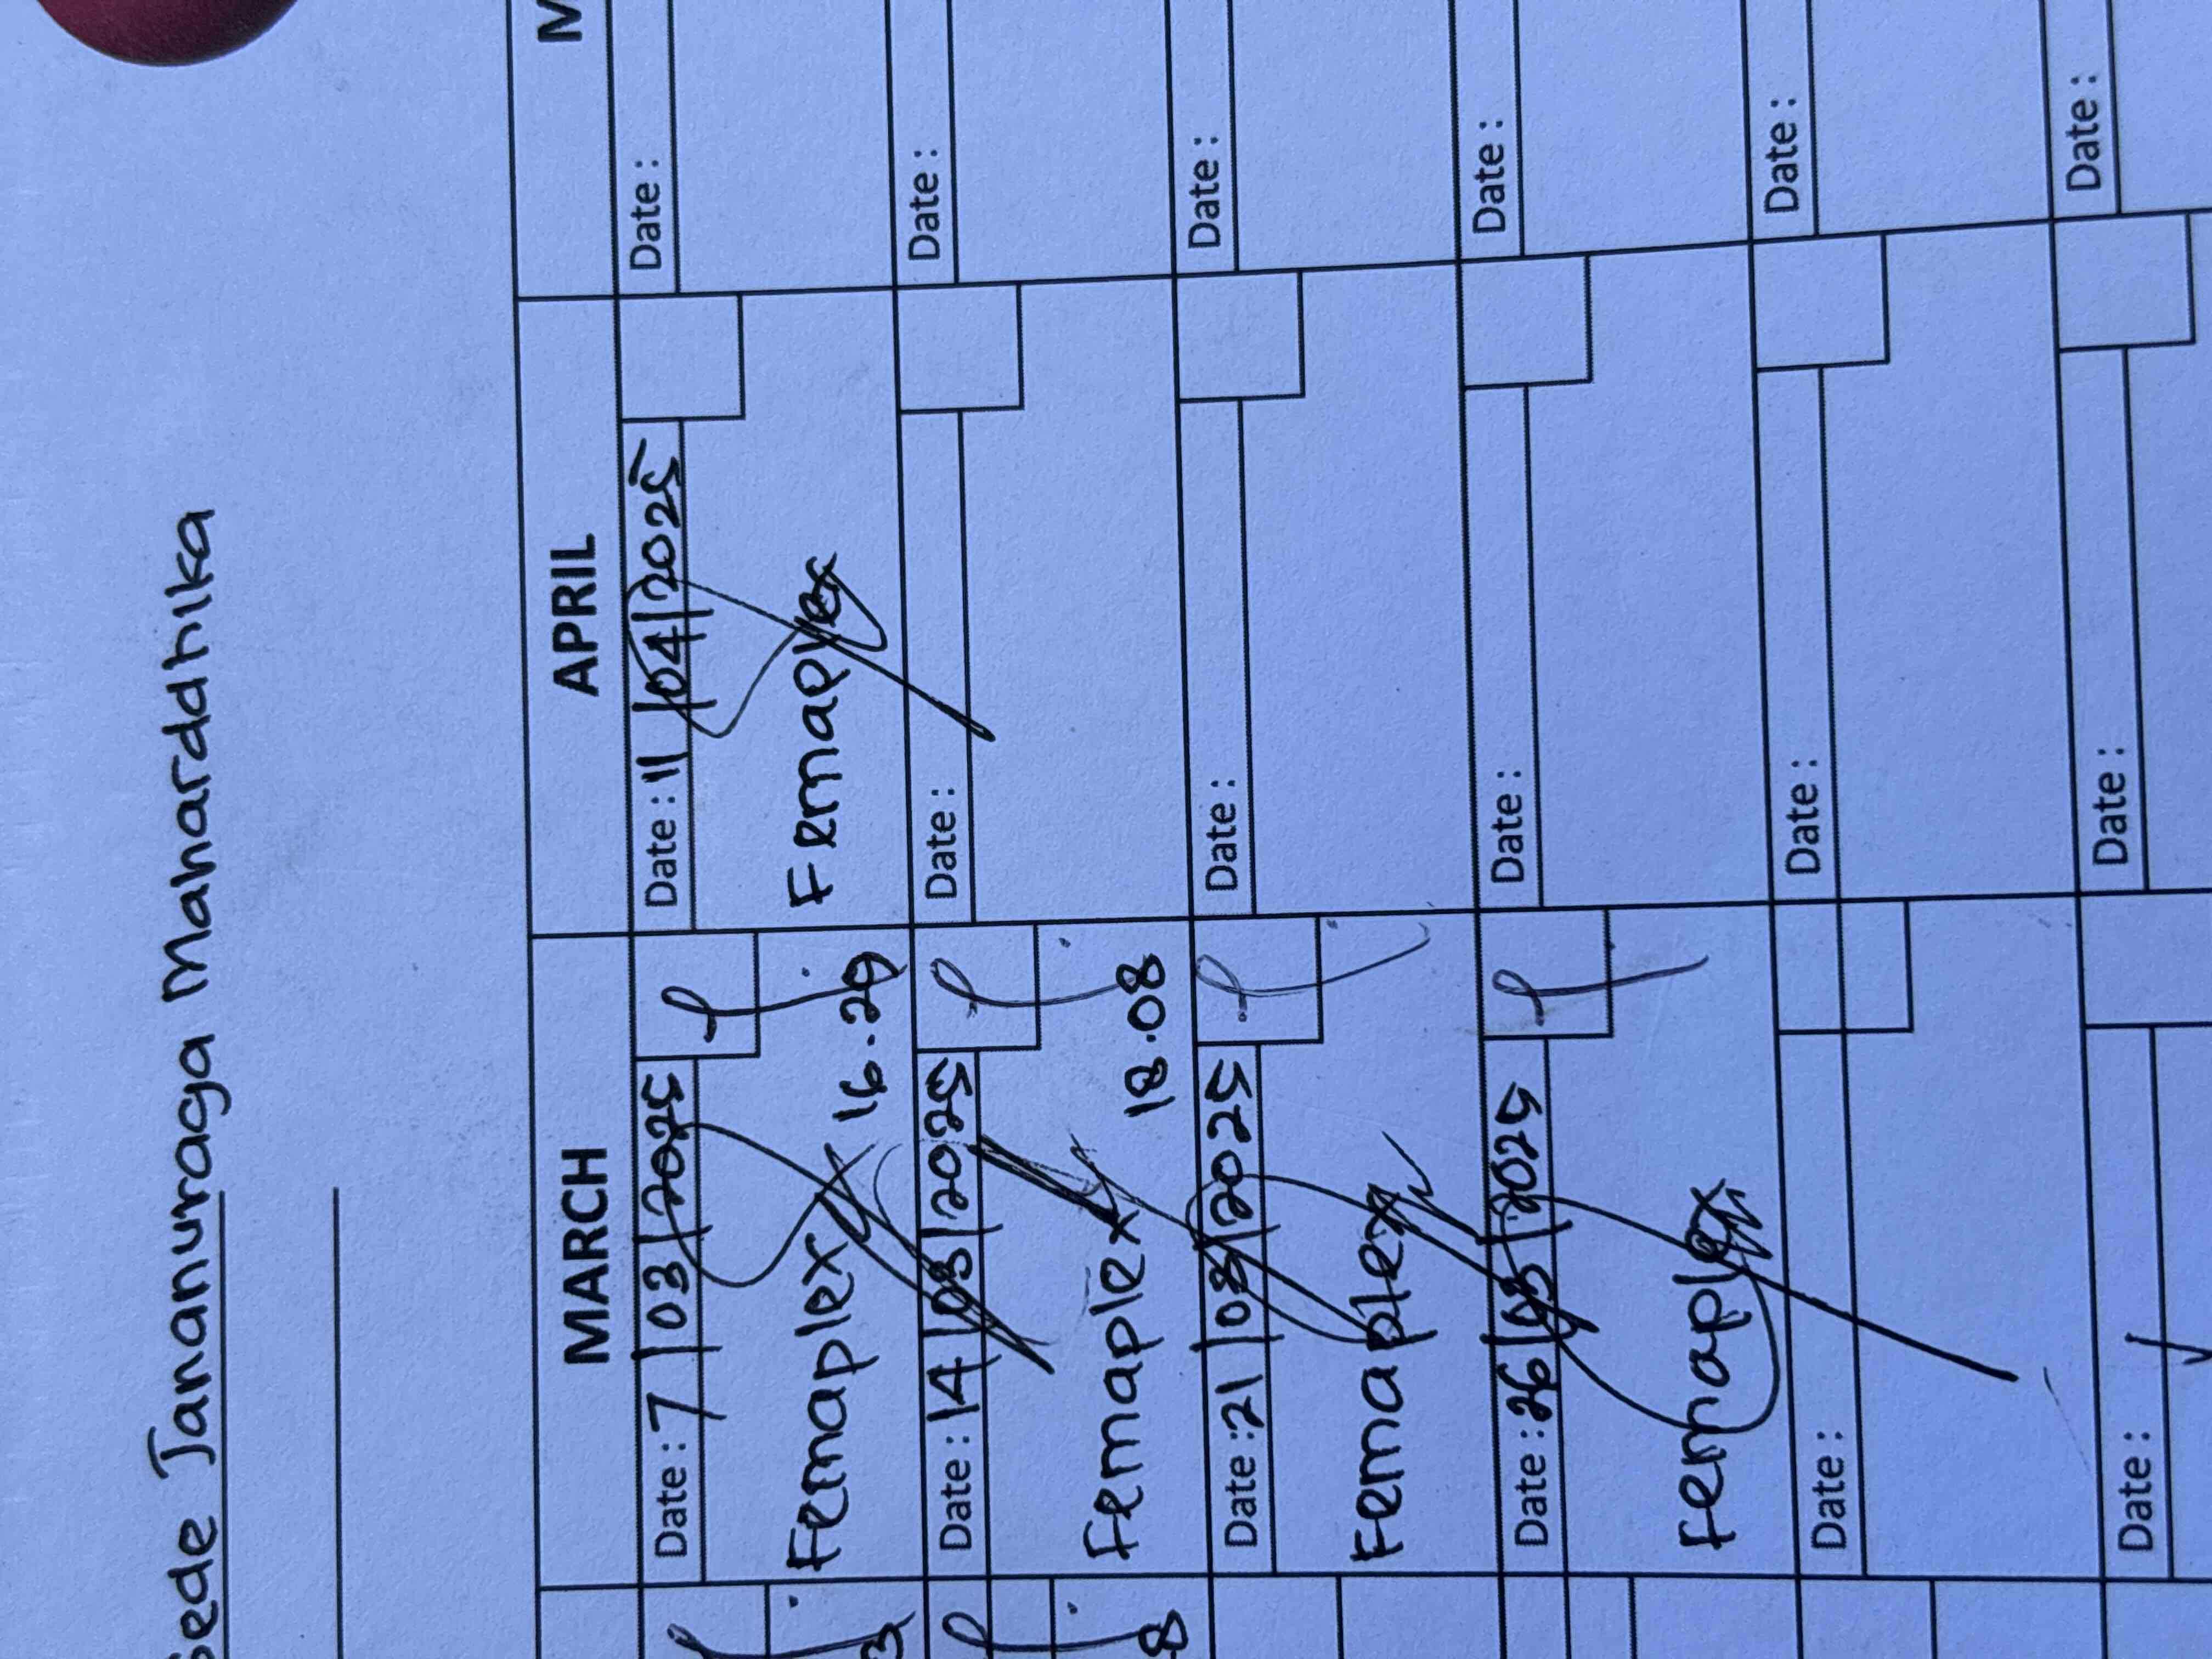 Gede Jananuraga Maharddhika
MARCH APRIL M
Date : 7/03/2025 Date : 11/04/2025 Date :
Femaplex 16.29 Femaplex
Date : 14/03/2025 Date : Date :
Femaplex 18.08
Date : 21/03/2025 Date : Date :
Femaplex
Date : 26/03/2025 Date : Date :
Femaplex
Date : Date : Date :
Date : Date : Date :